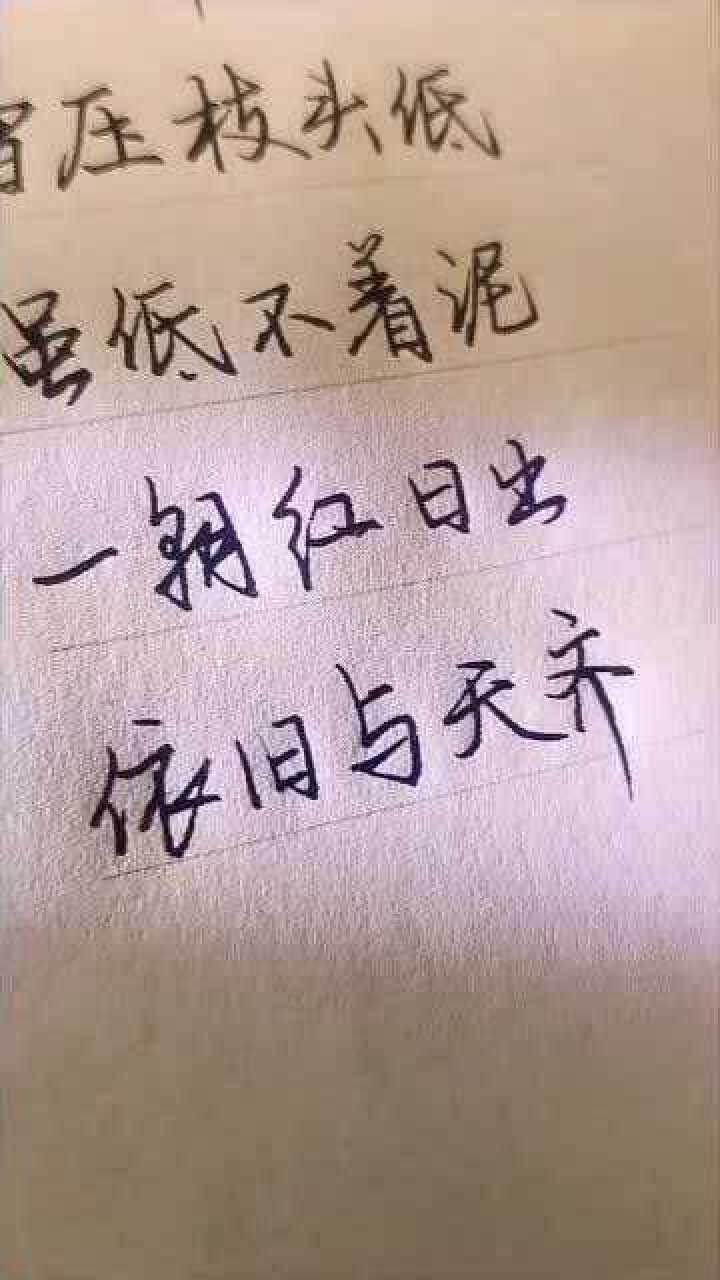 雪压枝头低
虽低不着泥
一朝红日出
依旧与天齐